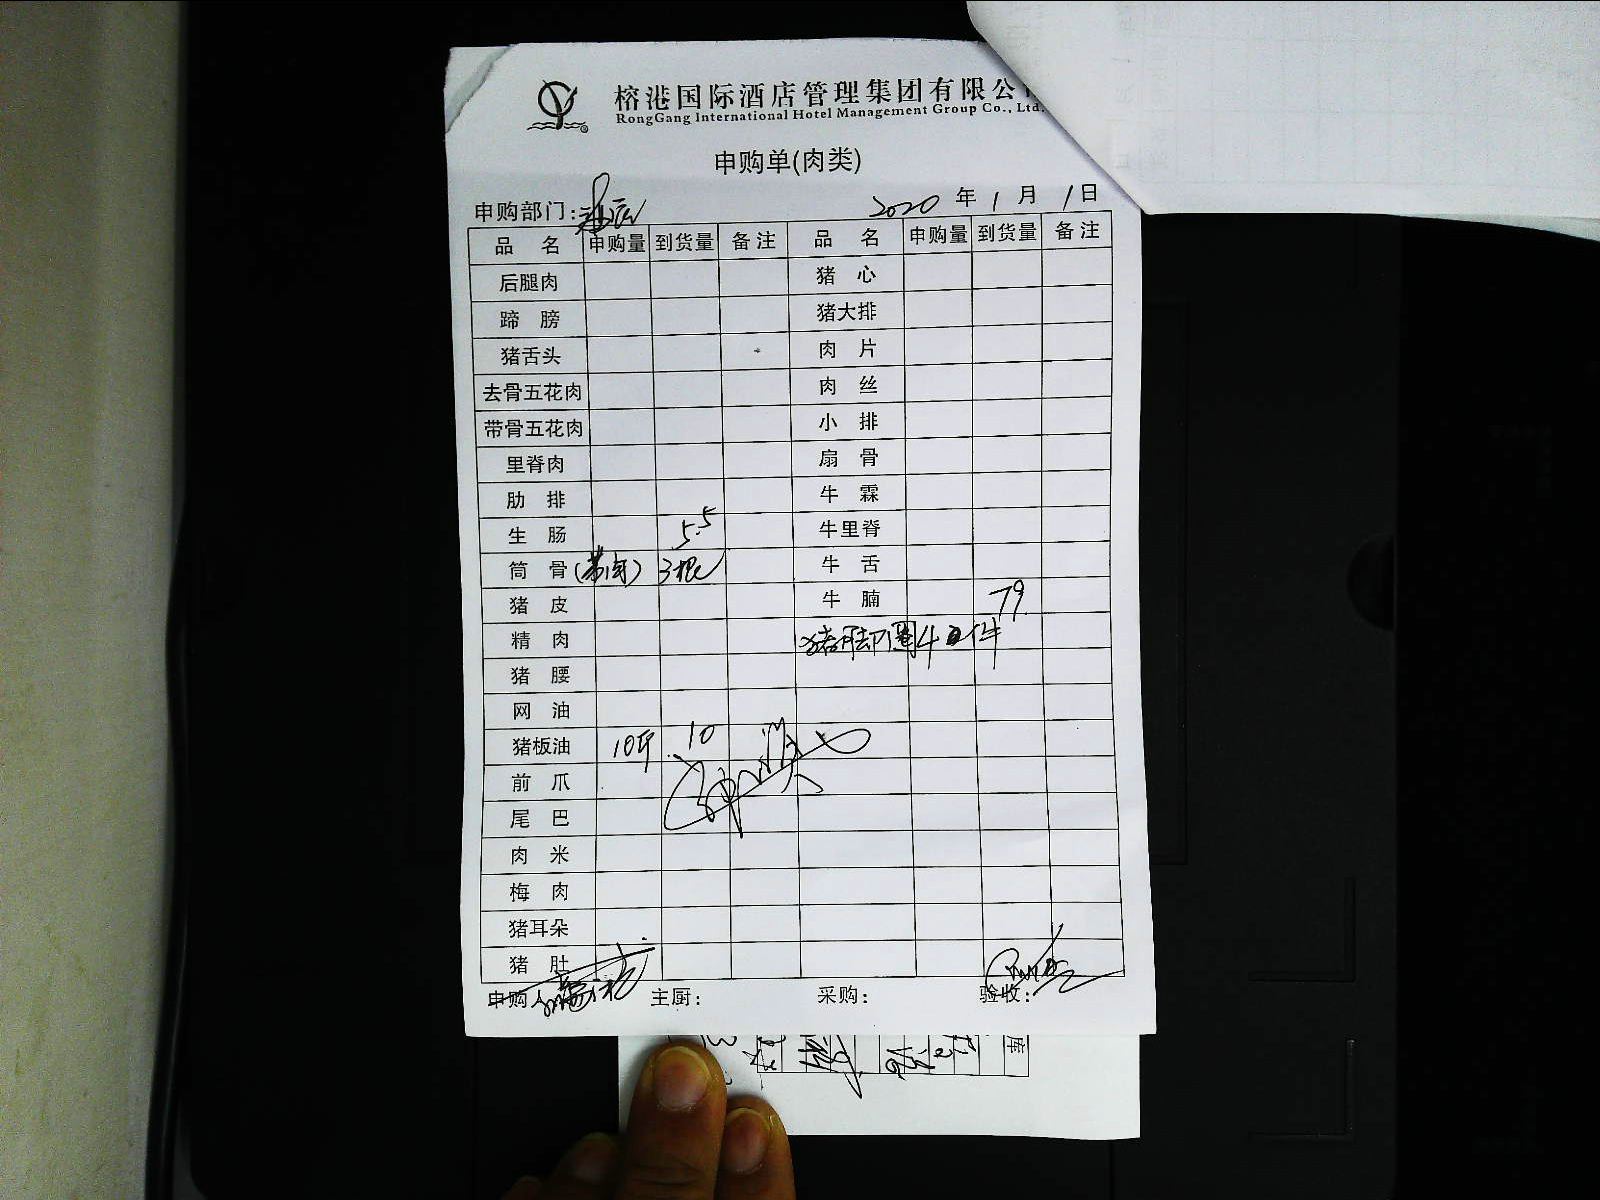 榕港国际酒店管理集团有限公
RongGang International Hotel Management Group Co., Ltd.
申购单(肉类)
申购部门: 2020 年 1 月 1 日
品 名 申购量 到货量 备注 品 名 申购量 到货量 备注
后腿肉 猪 心
蹄 膀 猪大排
猪舌头 肉 片
去骨五花肉 肉 丝
带骨五花肉 小 排
里脊肉 扇 骨
肋 排 牛 霖
生 肠 5.5 牛里脊
筒 骨 (带肉) 3根 牛 舌
猪 皮 牛 腩 79
精 肉 猪脚圈 4 件
猪 腰
网 油
猪板油 10斤 10
前 爪
尾 巴
肉 米
梅 肉
猪耳朵
猪 肚
申购人 主厨: 采购: 验收:
库